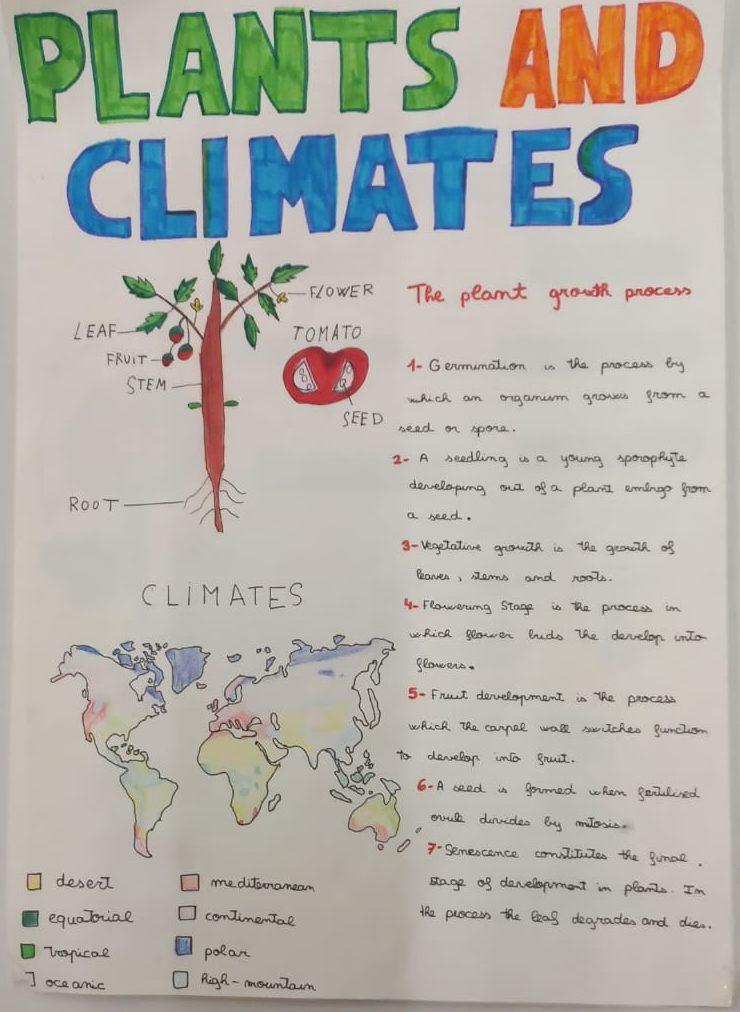 PLANTS AND
CLIMATES
FLOWER
LEAF
FRUIT
STEM
ROOT
TOMATO
SEED
The plant growth process
1- Germination is the process by
which an organism grows from a
seed or spore.
2- A seedling is a young sporophyte
developing out of a plant embryo from
a seed.
3- Vegetative growth is the growth of
leaves, stems and roots.
4- Flowering Stage is the process in
which flower buds the develop into
flowers.
5- Fruit development is the process
which the carpel wall switches function
to develop into fruit.
6- A seed is formed when fertilised
ovule divides by mitosis.
7- Senescence constitutes the final.
stage of development in plants. In
the process the leaf degrades and dies.
CLIMATES
desert
equatorial
tropical
oceanic
mediterranean
continental
polar
high-mountain